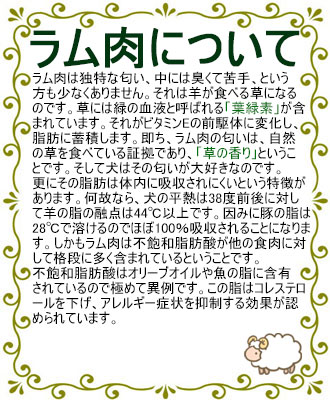 ラム肉について
ラム肉は独特な匂い、中には臭くて苦手、という
方も少なくありません。それは羊が食べる草になる
のです。草には緑の血液と呼ばれる「葉緑素」が含
まれています。それがビタミンEの前駆体に変化し、
脂肪に蓄積します。即ち、ラム肉の匂いは、自然
の草を食べている証拠であり、「草の香り」というこ
とです。そして犬はその匂いが大好きなのです。
更にその脂肪は体内に吸収されにくいという特徴が
あります。何故なら、犬の平熱は38度前後に対し
て羊の脂の融点は44℃以上です。因みに豚の脂は
28℃で溶けるのでほぼ100%吸収されることになりま
す。しかもラム肉は不飽和脂肪酸が他の食肉に対
して格段に多く含まれているということです。
不飽和脂肪酸はオリーブオイルや魚の脂に含有
されているので極めて異例です。この脂はコレステロ
ールを下げ、アレルギー症状を抑制する効果が認
められています。